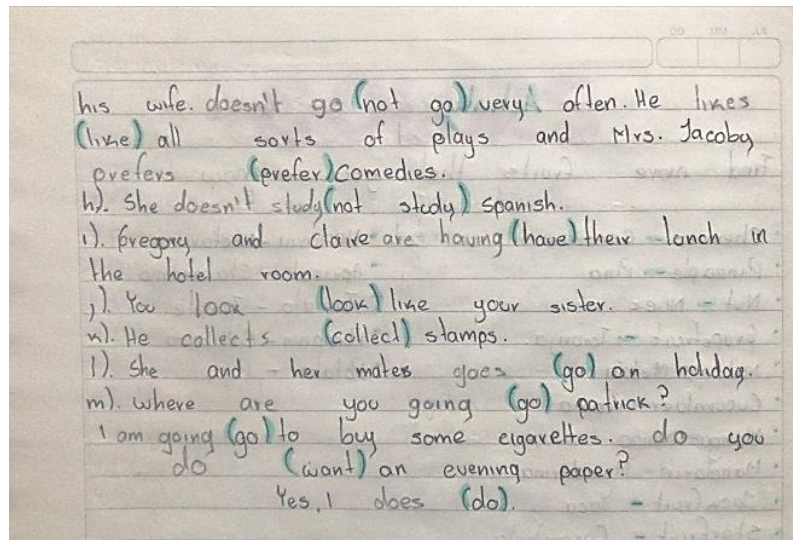 his wife. doesn't go (not go) very often. He likes
(like) all sorts of plays and Mrs. Jacoby
prefers (prefer) comedies.
h). She doesn't study (not study) Spanish.
i). Gregory and Claire are having (have) their lunch in
the hotel room.
j). You look (look) like your sister.
k). He collects (collect) stamps.
l). She and her mates goes (go) on holiday.
m). where are you going (go) patrick?
I am going (go) to buy some cigarettes. do you
do (want) an evening paper?
Yes, I does (do).